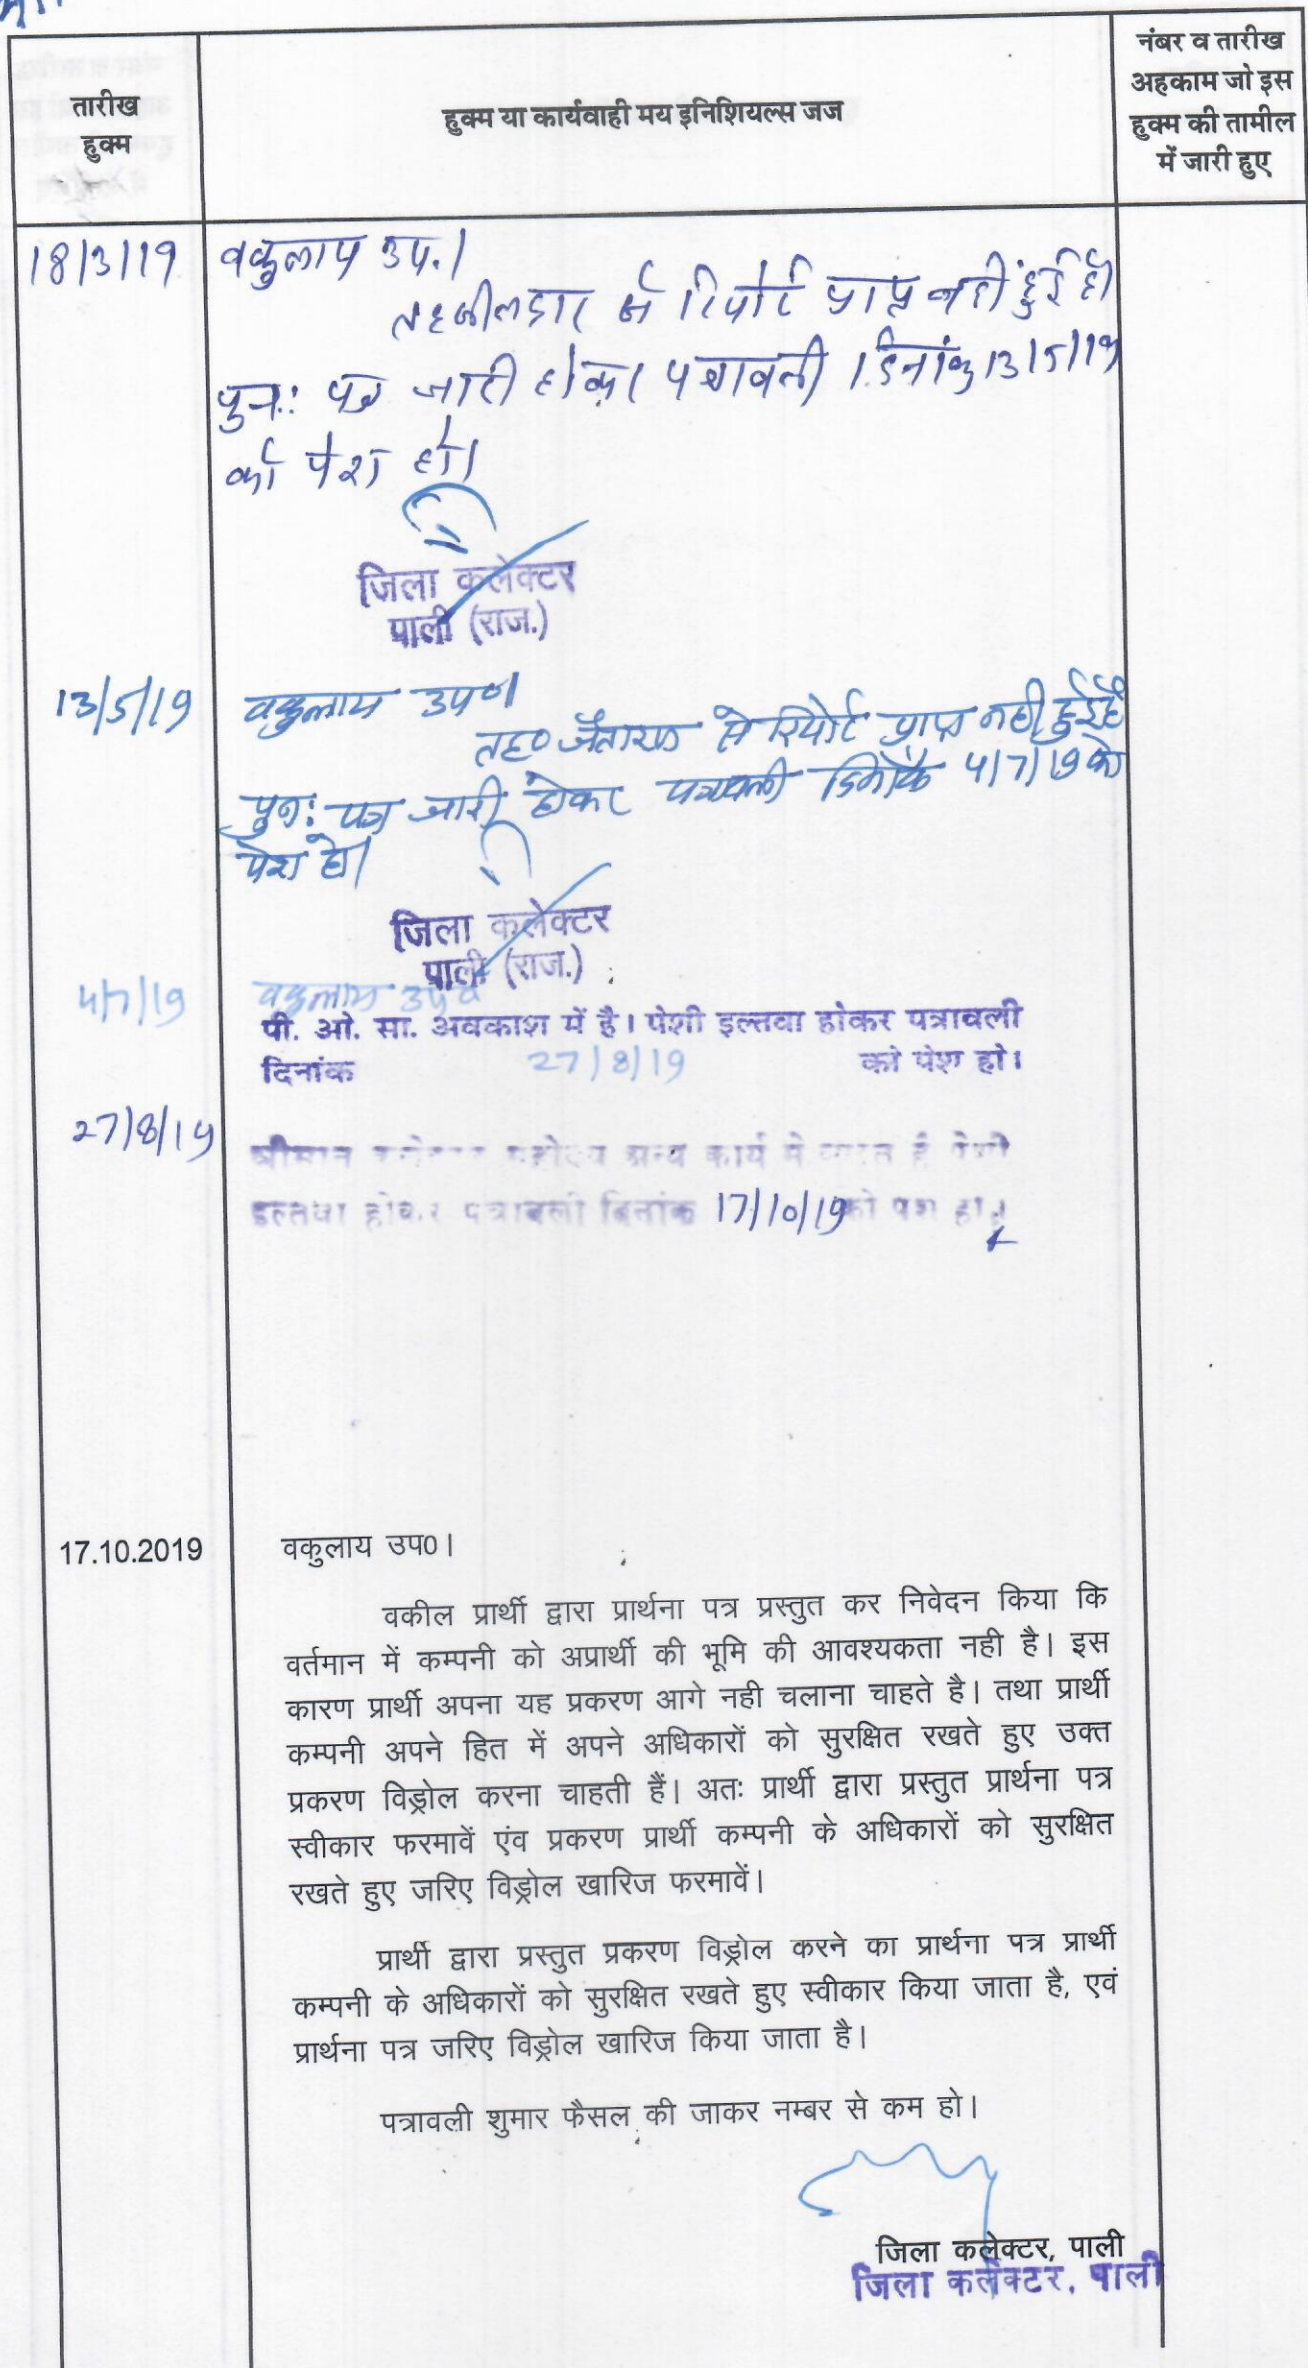 तारीख
हुक्म
हुक्म या कार्यवाही मय इनिशियल्स जज
नंबर व तारीख
अहकाम जो इस
हुक्म की तामील
में जारी हुए
18/3/19 वकुलाय उप.।
तहसीलदार से रिपोर्ट प्राप्त नहीं हुई है।
पुनः पत्र जारी होकर पत्रावली दिनांक 13/5/19
को पेश हो।
जिला कलेक्टर
पाली (राज.)
13/5/19 वकुलाय उप०।
तह० जैतारण से रिपोर्ट प्राप्त नही हुई है
पुनः पत्र जारी होकर पत्रावली दिनांक 4/7/19 को
पेश हो।
जिला कलेक्टर
पाली (राज.)
4/7/19 वकुलाय उप०
पी. ओ. सा. अवकाश में है। पेशी इल्तवा होकर पत्रावली
दिनांक 27/8/19 को पेश हो।
27/8/19 श्रीमान महोदय अन्य कार्य मे है पेशी
इल्तवा होकर पत्रावली दिनांक 17/10/19 को पेश हो।
17.10.2019 वकुलाय उप0।
वकील प्रार्थी द्वारा प्रार्थना पत्र प्रस्तुत कर निवेदन किया कि
वर्तमान में कम्पनी को अप्रार्थी की भूमि की आवश्यकता नही है। इस
कारण प्रार्थी अपना यह प्रकरण आगे नही चलाना चाहते है। तथा प्रार्थी
कम्पनी अपने हित में अपने अधिकारों को सुरक्षित रखते हुए उक्त
प्रकरण विड्रोल करना चाहती हैं। अतः प्रार्थी द्वारा प्रस्तुत प्रार्थना पत्र
स्वीकार फरमावें एंव प्रकरण प्रार्थी कम्पनी के अधिकारों को सुरक्षित
रखते हुए जरिए विड्रोल खारिज फरमावें।
प्रार्थी द्वारा प्रस्तुत प्रकरण विड्रोल करने का प्रार्थना पत्र प्रार्थी
कम्पनी के अधिकारों को सुरक्षित रखते हुए स्वीकार किया जाता है, एवं
प्रार्थना पत्र जरिए विड्रोल खारिज किया जाता है।
पत्रावली शुमार फैसल की जाकर नम्बर से कम हो।
जिला कलेक्टर, पाली
जिला कलेक्टर, पाली